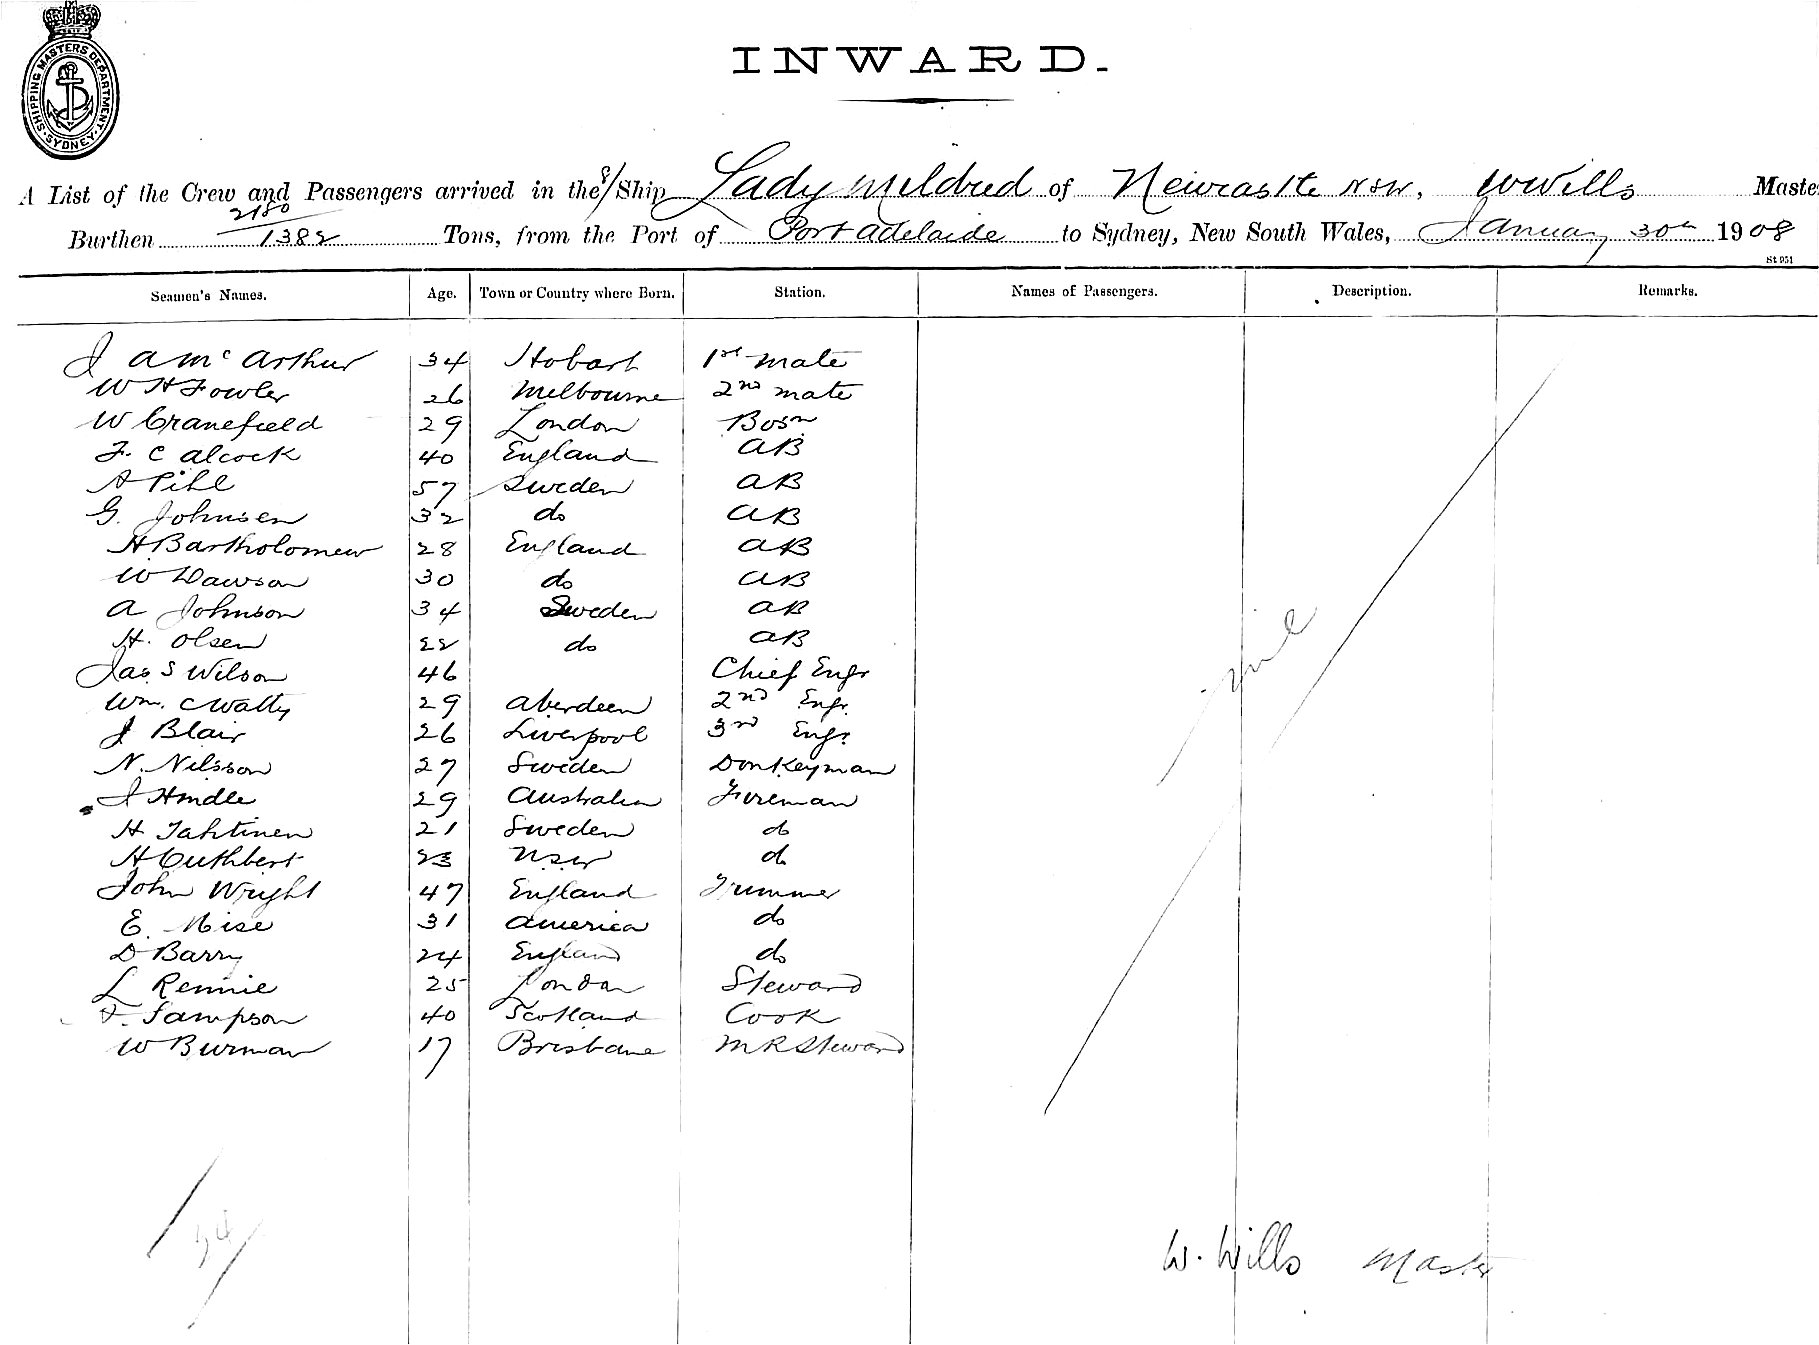 SHIPPING MASTERS DEPARTMENT. SYDNEY.
INWARD.
A List of the Crew and Passengers arrived in the S/Ship Lady Mildred of Newcastle NSW, W Wills Maste
2180
Burthen 1382 Tons, from the Port of Port Adelaide to Sydney, New South Wales, January 30th 1908
St 951
Seamen's Names. Age. Town or Country where Born. Station. Names of Passengers. Description. Remarks.
J A Mc Arthur 34 Hobart 1st Mate
W H Fowler 26 Melbourne 2nd Mate
W Cranefield 29 London Bosn
F. C Alcock 40 England AB
A Pihl 57 Sweden AB
G. Johnsen 32 do AB
H Bartholomew 28 England AB
W Dawson 30 do AB
A Johnson 34 Sweden AB
H. Olsen 22 do AB
Jas S Wilson 46 Chief Engr
Wm. C Watty 29 Aberdeen 2nd Engr.
J Blair 26 Liverpool 3rd Engr.
N. Nilsson 27 Sweden Donkeyman
J Hindle 29 Australia Fireman
H Tahtinen 21 Sweden do
H Cuthbert 23 NSW do
John Wright 47 England Trimmer
E. Mise 31 America do
D Barry 24 England do
L Rennie 25 London Steward
F. Sampson 40 Scotland Cook
W Burman 17 Brisbane M R Steward
nil
24
W. Wills Master